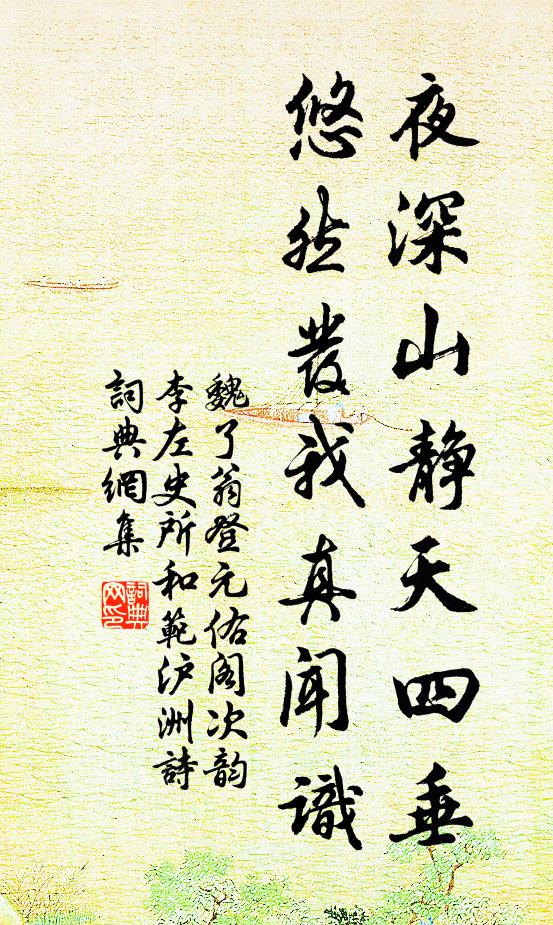 夜深山静天四垂
悠然發我真聞識
魏了翁登元佑阁次韵
李左史所和範沪洲詩
詞典網集
詞典
网印